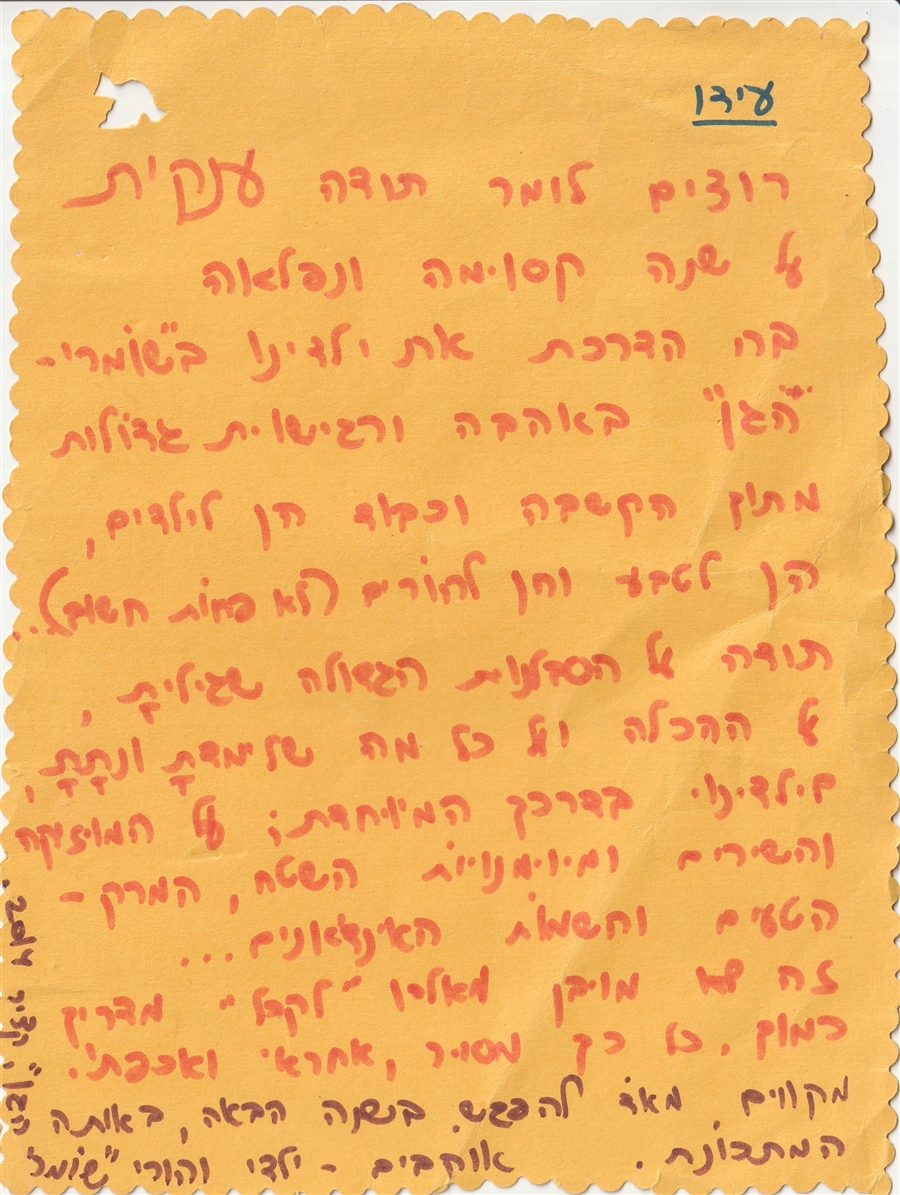 עידו
רוצים לומר תודה ענקית
על שנה קסומה ונפלאה
בה הדרכת את ילדינו ב"שומרי-
הגן" באהבה ורגישוית גדולות
מתוך הקשבה וכבוד הן לילדים,
הן לטבע והן להורים (לא פחות חשוב)...
תודה על הסבלנות הגדולה שגילית,
על ההכלה ועל כל מה שלימדת ונתת,
לילדינו בדרכך המיוחדת; על המוזיקה
והשירים ומיומנויות השטח, המרק -
הטעים ושמות האינדאונים...
זה שלא מובן מאליו "לקבל" מדריך
כמוך, כל כך מסור, אחראי ואכפתי.
מקווים מאד להפגש בשנה הבאה, באותה
המתכונת. אוהבים - ילדי והורי "שומרי